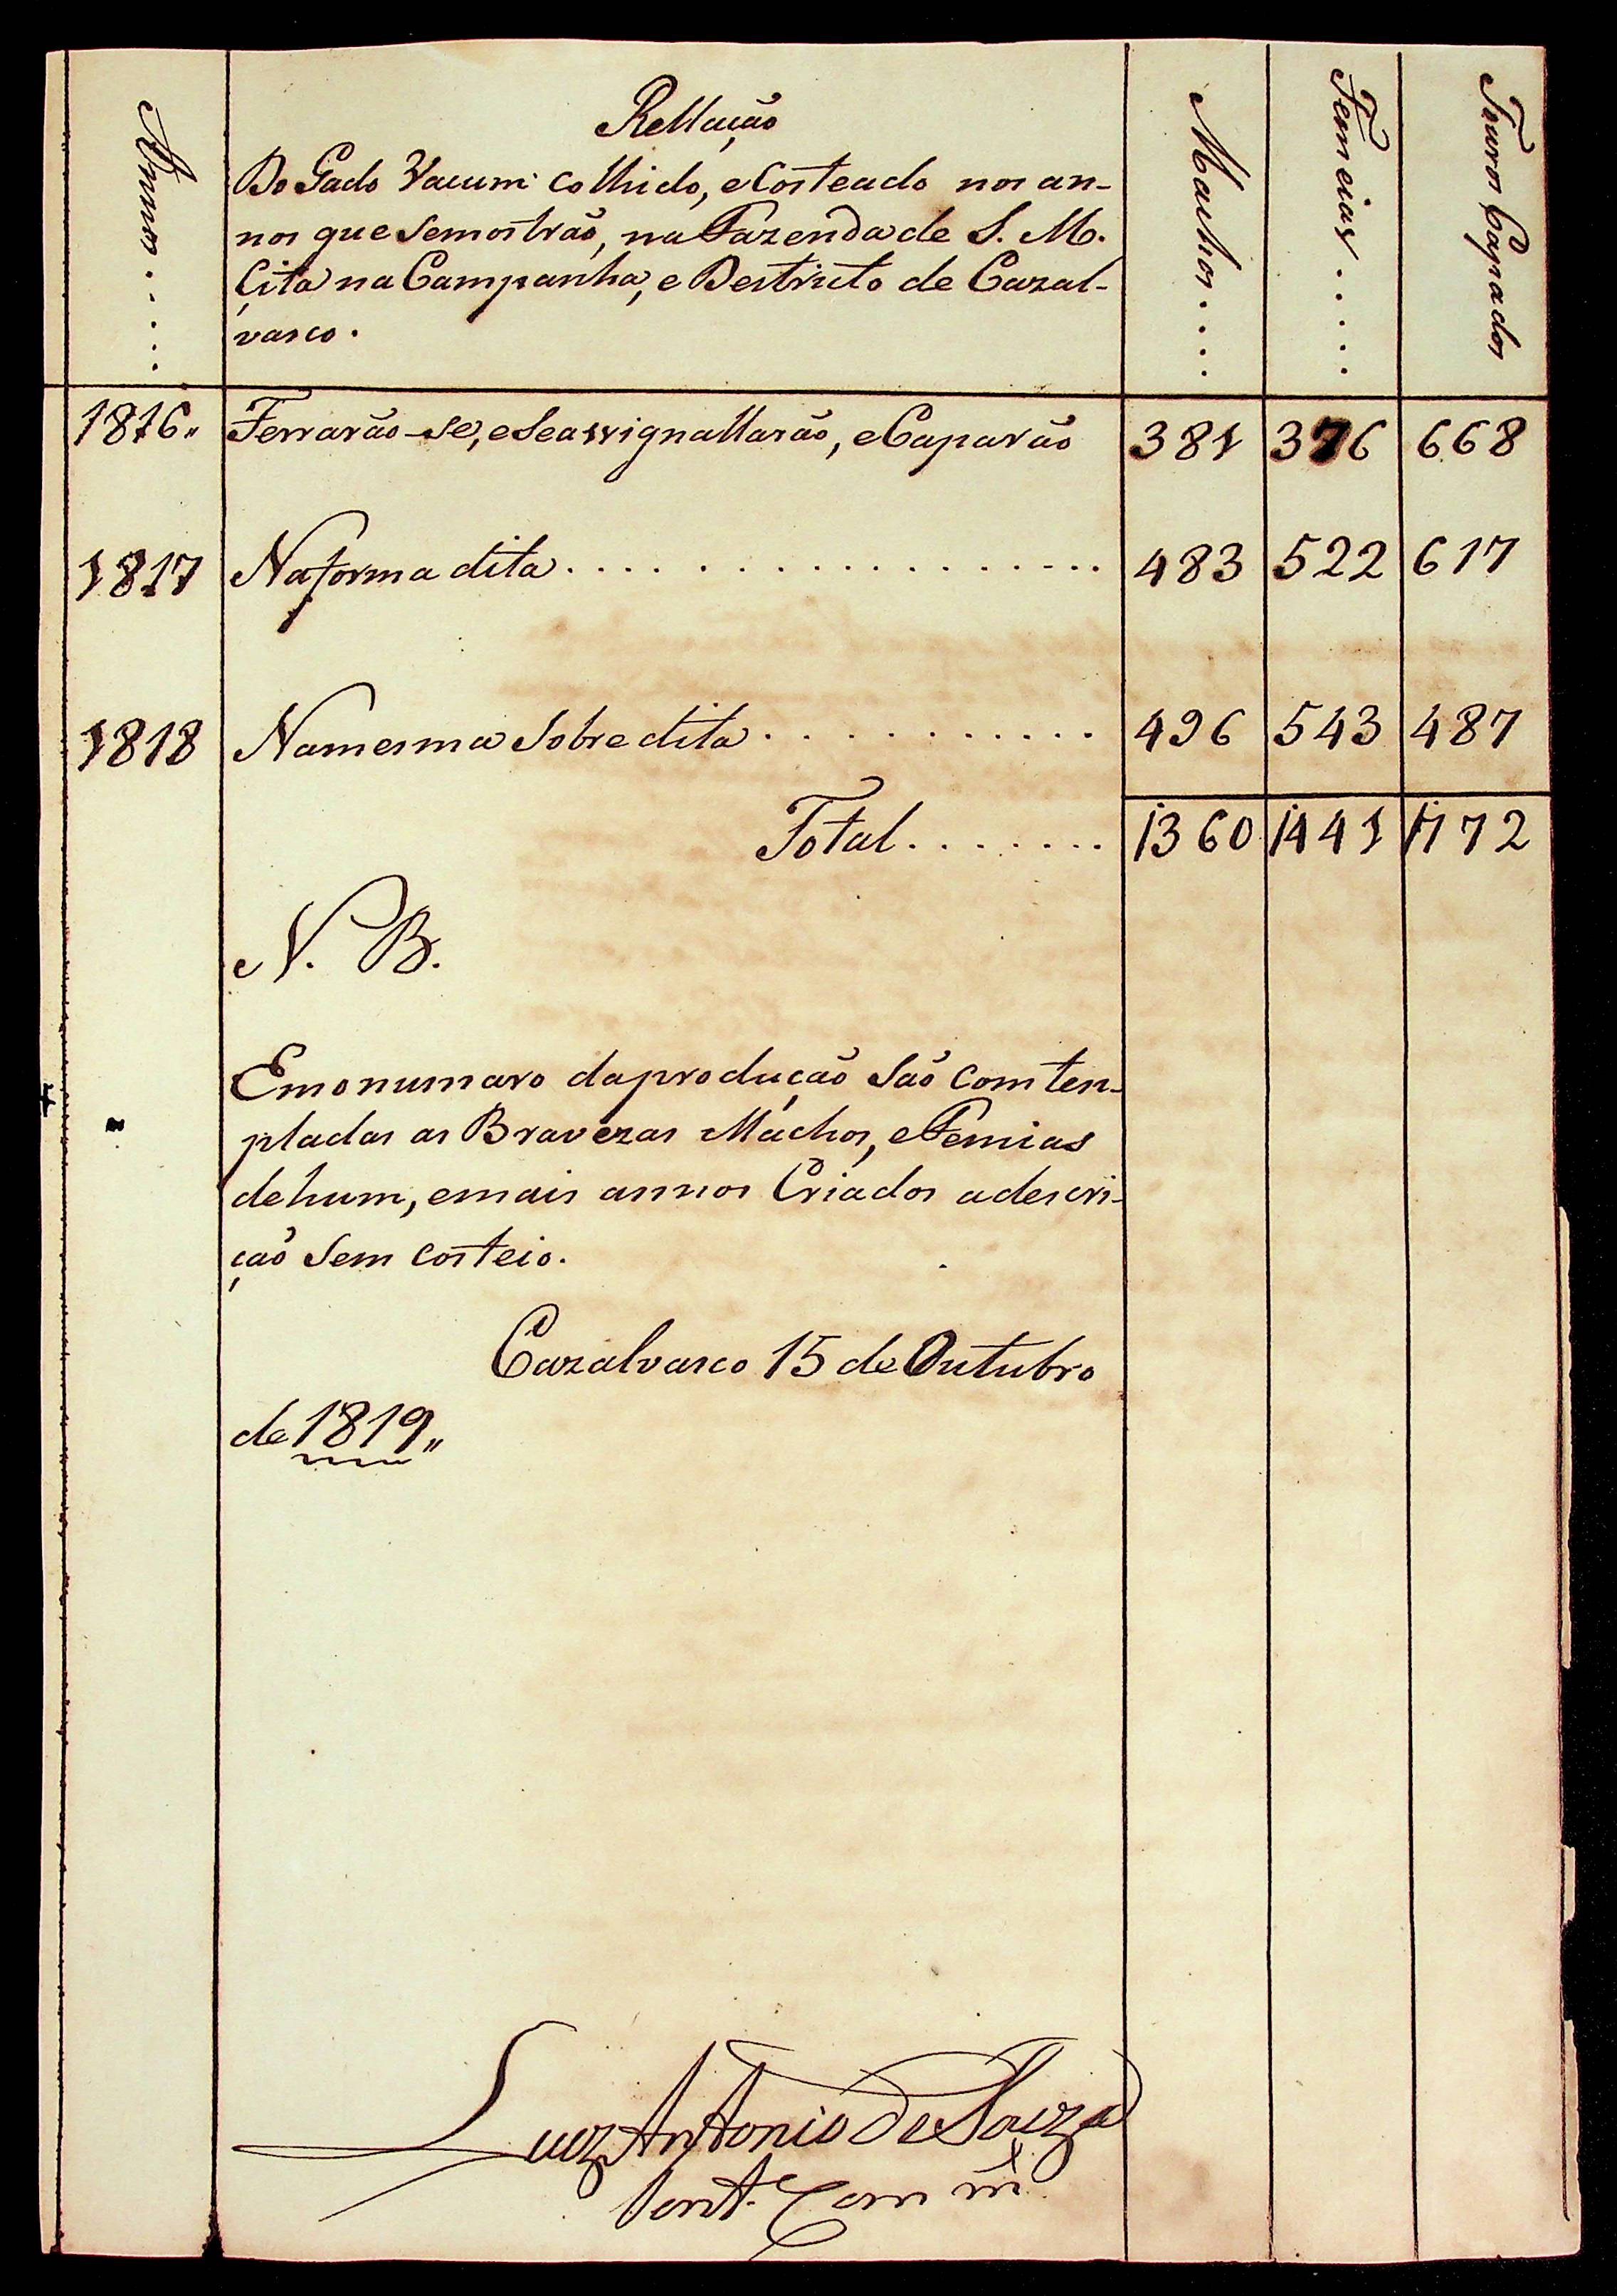 Annos.....
Rellação
Machos....
Femeias.....
Touros Capados
Do Gado Vacum colhido, e Costeado nos an-
nos que semostrão, na Fazenda de S. M.
Çita na Campanha, e Destricto de Cazal-
vasco.
1816,, Ferrarão-se, e Seassignallarão, e Caparão 381 376 668
1817 Naforma dita................... 483 522 617
1818 Namesma Sobre dita............ 496 543 487
Total........ 1360 1441 1772
N. B.
Emonumaro daprodução São Comten-
pladas as Bravezas Machos, e Femias
dehum, emais annos Criados adescri-
ção Sem Costeio.
Cazalvasco 15 de Outubro
de 1819,,
Luiz Antonio de Souza